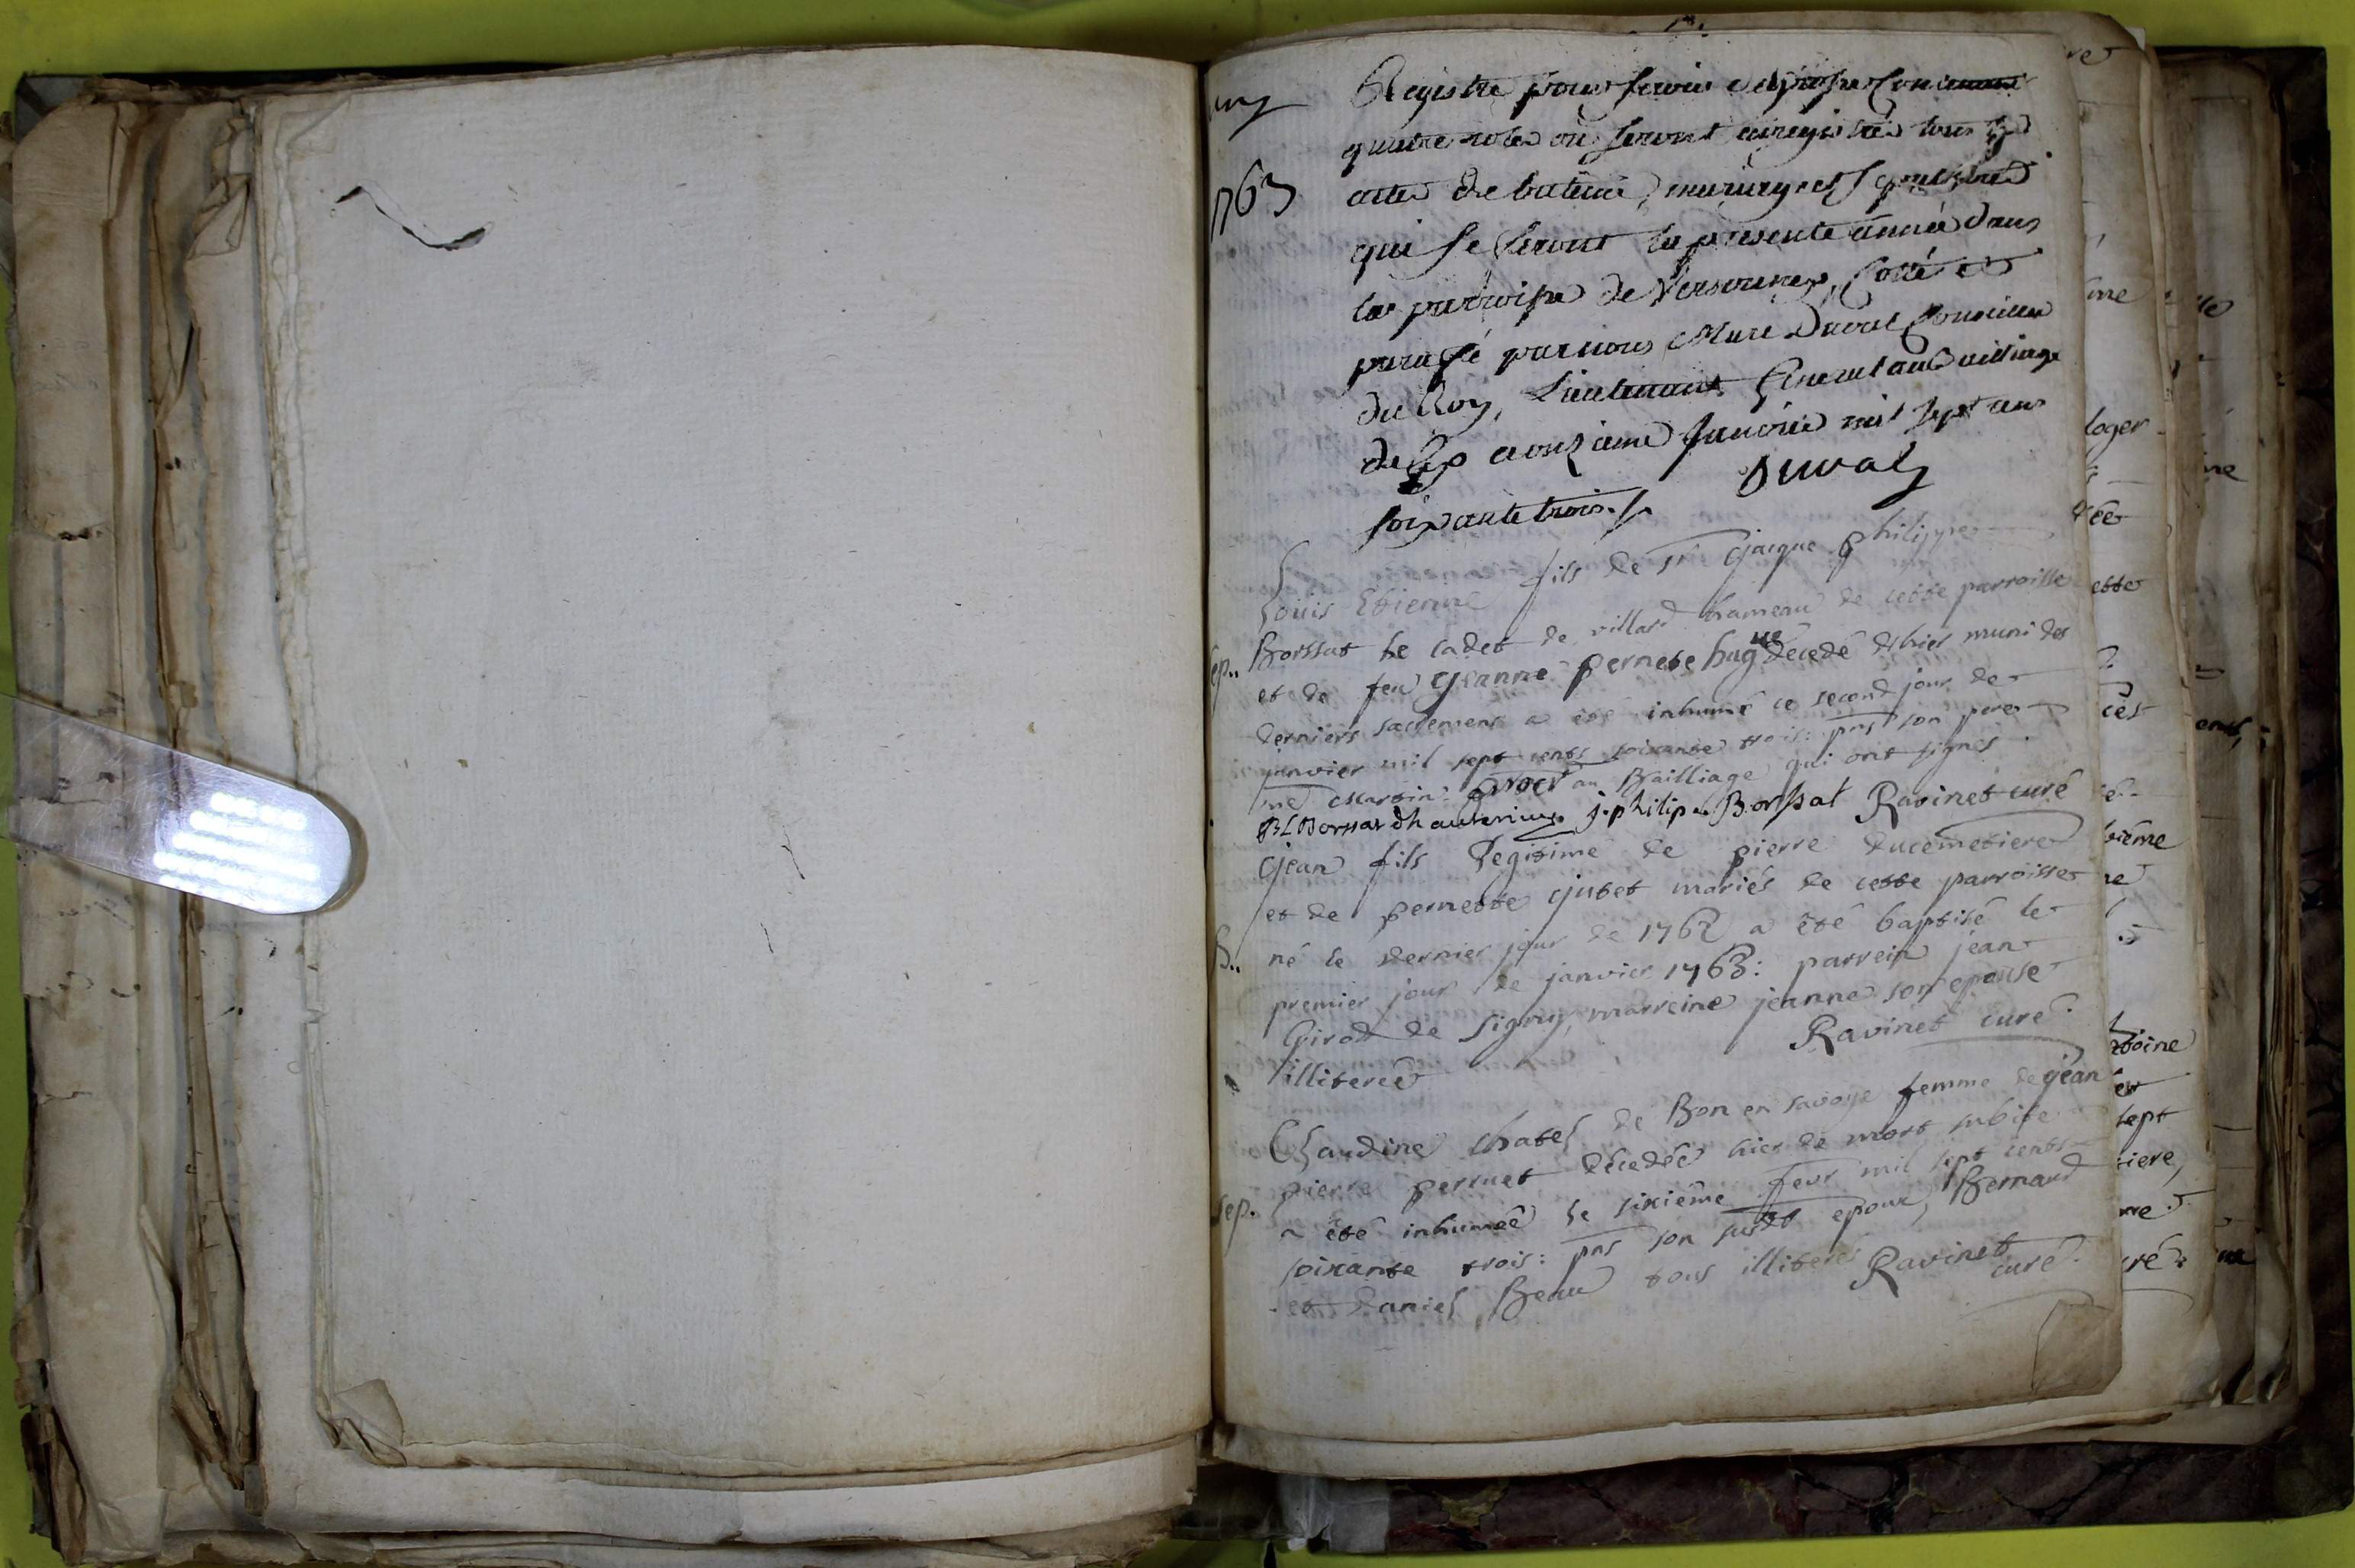 1763
Registre pour servir
quatre roles où seront enregistrés tous les
actes de batême, mariage et sepulture
qui se feront la presente année dans
la parroisse de Versonnex, cotté et
paraffé par nous Marc Duval Conseiller
du Roy, Lieutenant General au Bailliage
de Gex ce onzieme Janvier mil sept cens
soixante trois ./.
Duval
Louis Etienne fils de Sr Gjacque philippe
Borssat le cadet de villard hameau de cette parroisse
ep.. et de feu Gjeanne pernete hugue decedé d'hier muni des
derniers sacremens a été inhumé ce second jour de
janvier mil sept cents soixante trois: pns son pere
me Martin au Bailliage qui ont signés.
j. philipe Borssat Ravinet curé
Gjean fils legitime de pierre ducemetiere
et de pernette Gjutet mariés de cette parroisse
B.. né le dernier jour de 1762 a été baptisé le
premier jour de janvier 1763: parrein jean
Girod de Signy, marreine jeanne son epouse
illiterée
Ravinet curé.
Claudine chatel de Bon en savoye femme de Gjean
pierre perruet décedée hier de mort subite
sep. a été inhumée le sixième fevr mil sept cents
soixante trois: pns son susdt epoux, Bernard
et Daniel Beau tous illiterés Ravinet
curé.
loger
ette
ces
ième
toine
sept
tiere,